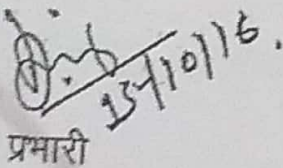 15/10/16.
प्रभारी